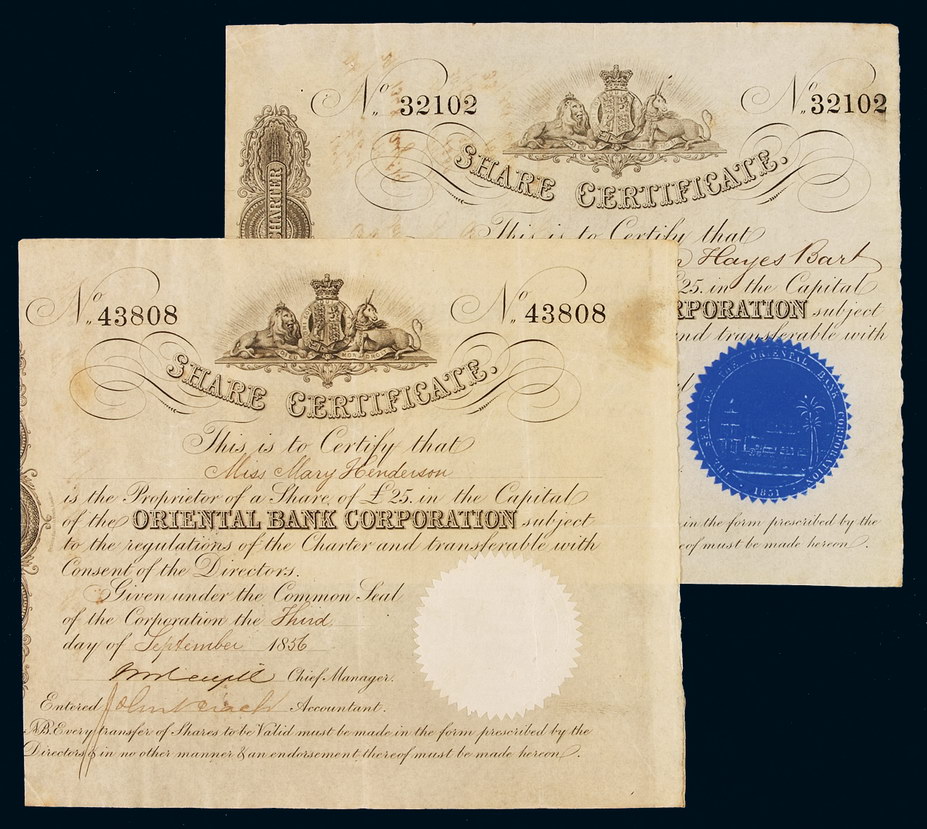 No 32102
No 32102
SHARE CERTIFICATE.
CHARTER
This is to Certify that
Hayes Bart
25. in the Capital
RPORATION subject
and transferable with
THE ORIENTAL BANK CORPORATION
1851
in the form prescribed by the
eof must be made hereon.
No 43808
No 43808
SHARE CERTIFICATE.
This is to Certify that
Miss Mary Henderson
is the Proprietor of a Share of £25. in the Capital
of the ORIENTAL BANK CORPORATION subject
to the regulations of the Charter and transferable with
Consent of the Directors.
Given under the Common Seal
of the Corporation the Third
day of September 1856
Chief Manager.
Entered John Accountant.
NB. Every transfer of Shares to be Valid must be made in the form prescribed by the
Directors & in no other manner & an endorsement thereof must be made hereon.